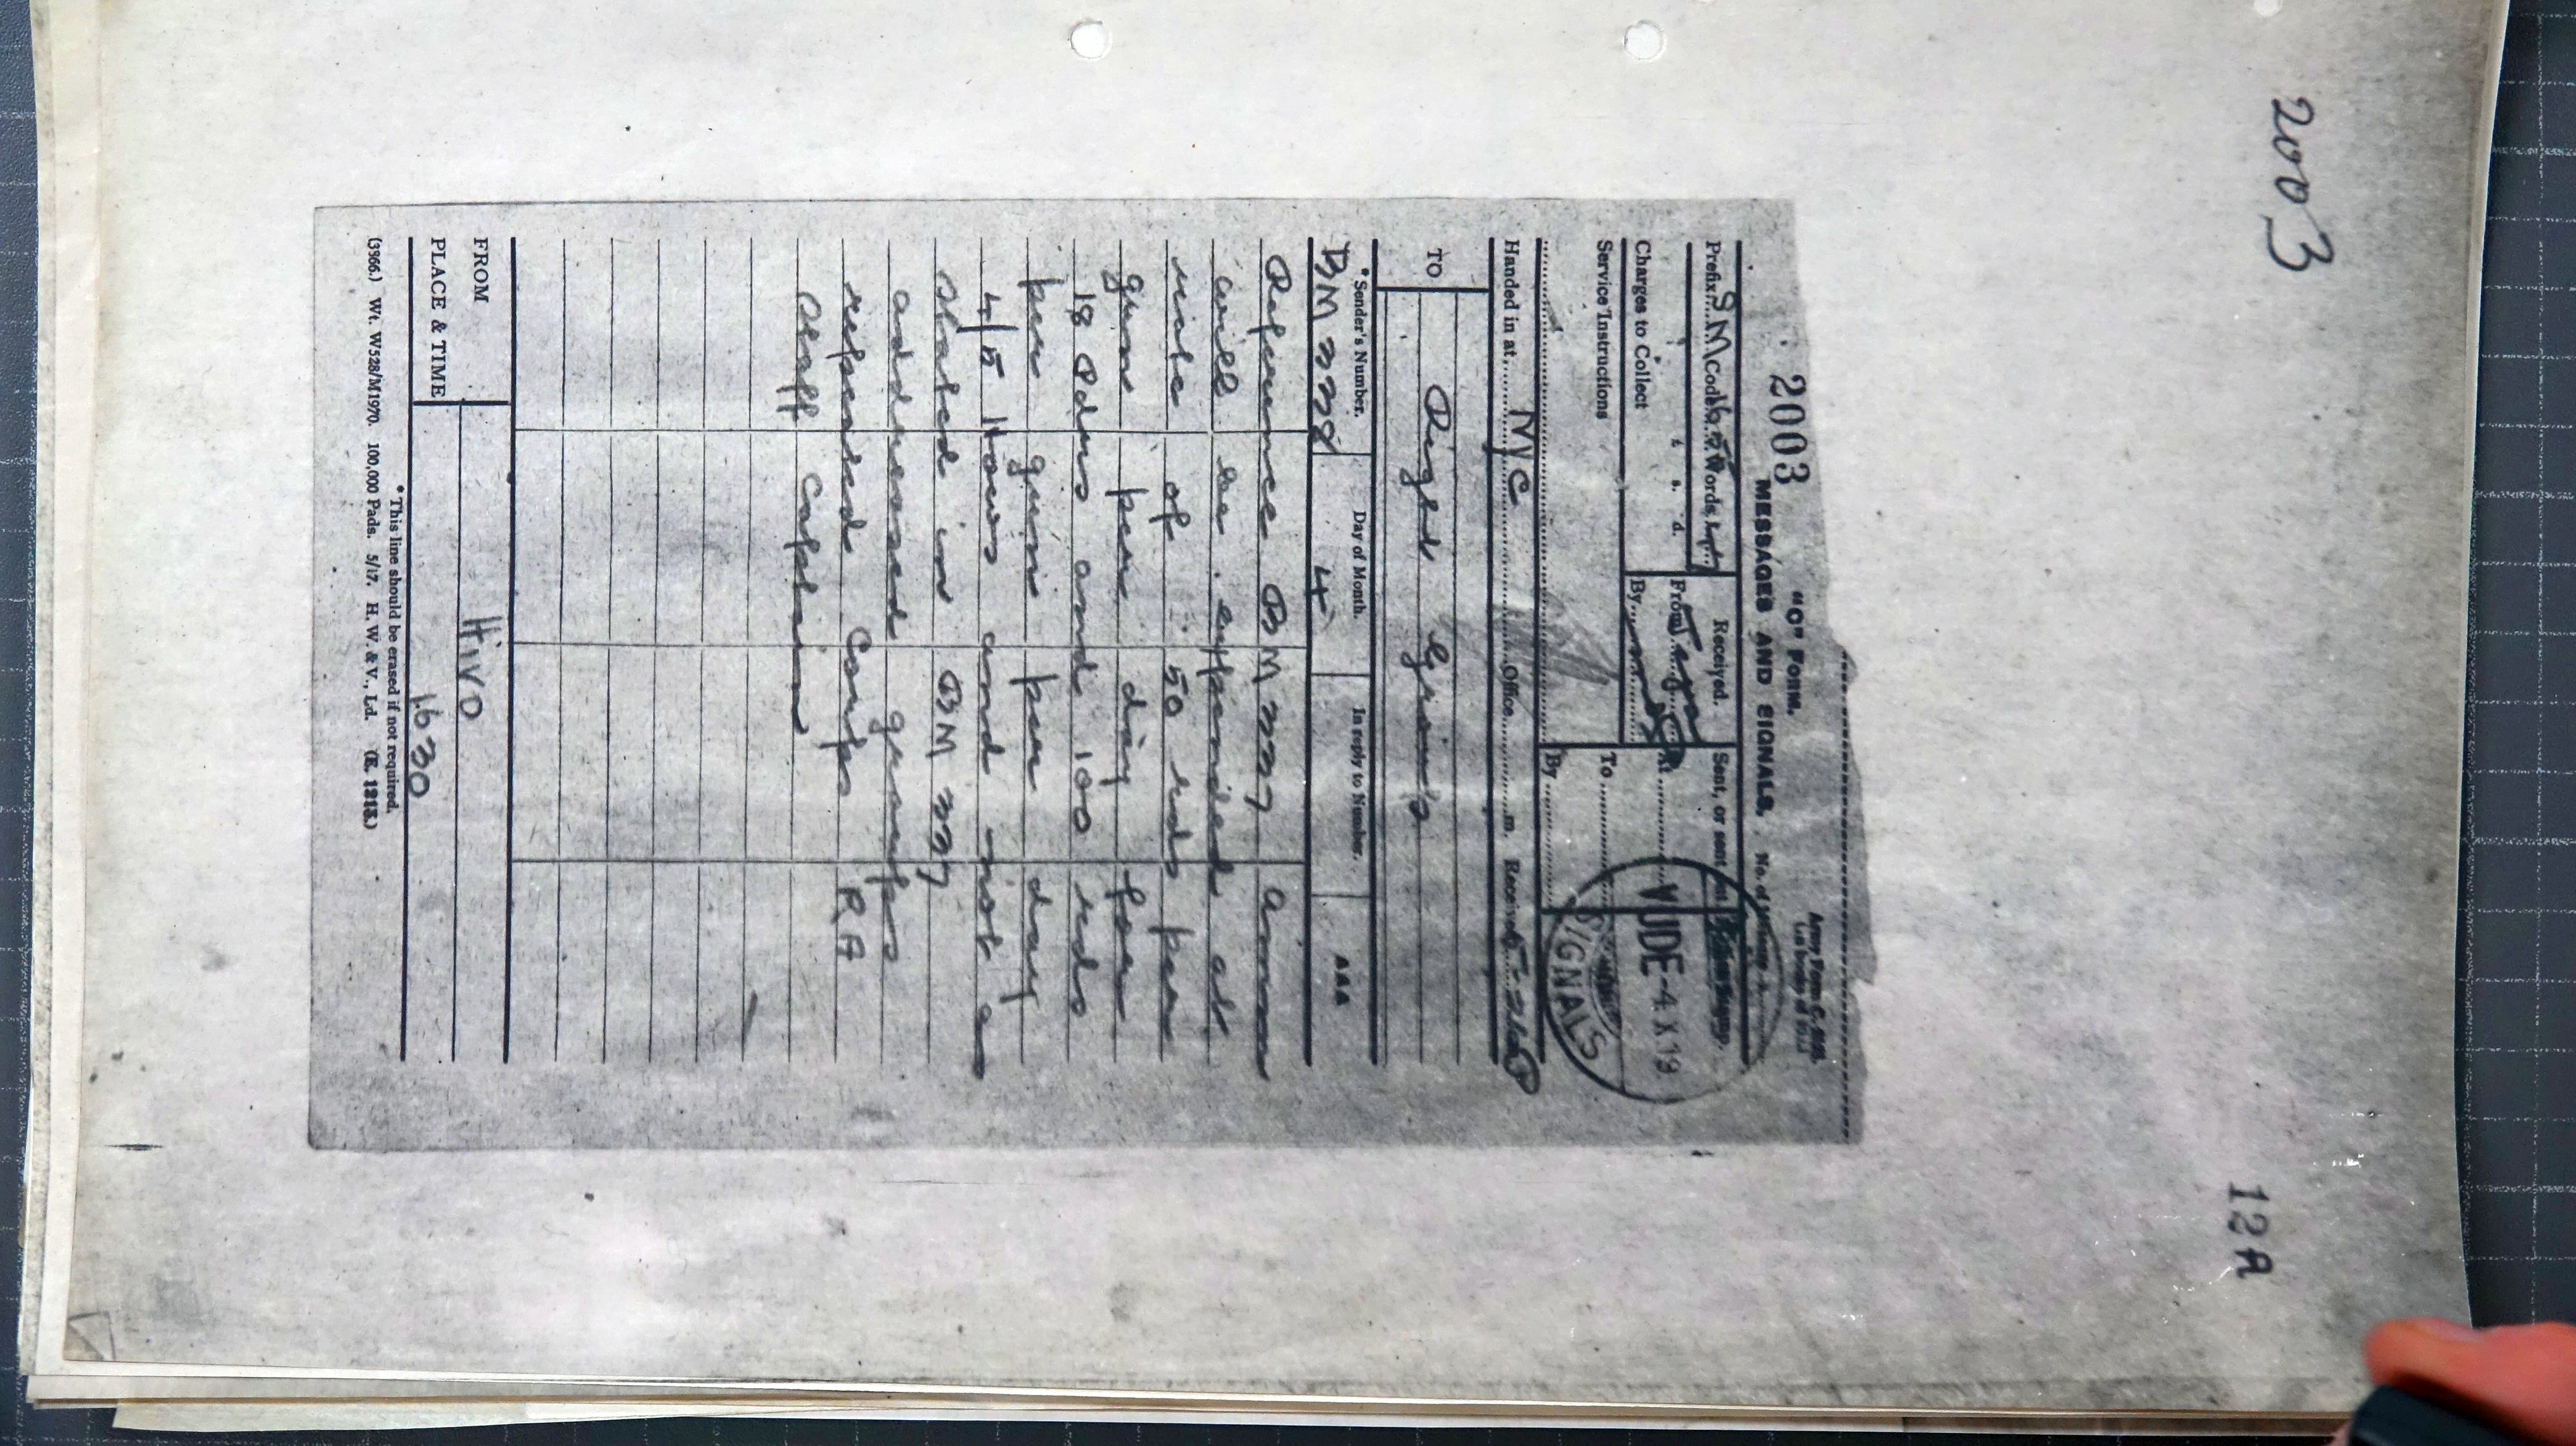 2003
12A
2003
"C" Form.
MESSAGES AND SIGNALS.
Army Form C.
No. of Message
Prefix SM Code Words
Received.
Sent, or sent out
From
By
Charges to Collect
s. d.
Service Instructions
To
By
WUDE-4 X 19
SIGNALS
Handed in at MC Office m. Received
TO Right Group
*Sender's Number. Day of Month. In reply to Number. AAA
4
Reference BM ammn
will be expended at
rate of 50 rds per
gun per day for
18 Pdrs and 100 rds
per gun per day
4/5 Hows and not as
stated in BM
addressed groups
repeated Corps RA
Staff Captain
FROM HIVO
PLACE & TIME 16 30
*This line should be erased if not required.
(3966.) Wt. W528/M1970. 100,000 Pads. 5/17. H. W. & V., Ld. (E. 1213.)